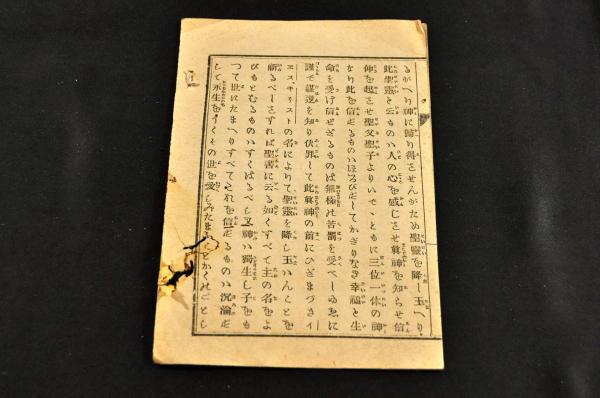 るがへり神に歸り得させんがため聖靈を降し玉へり
此聖靈と云ものハ人の心を感じさせ眞神を知らせ信
仰を起させ聖父聖子よりいでヽともに三位一体の神
なり此を信ずるものハほろびずしてかぎりなき幸福と生
命を受け信ぜざるものは無極の苦罰を受べしゆゑに
謹で謀逆を知り伏罪して此眞神の前にひざまづきイ
エス、キリストの名によりて聖靈を降し玉ハんことを
祈るべしさすれば聖書に云る如くすべて主の名をよ
びもとむるものハすくはるべし又神ハ獨生し子をも
つて世にたまへりすべてこれを信ずるものハ沉淪ず
して永生をうくその世を愛しみたまふことかくのごとし